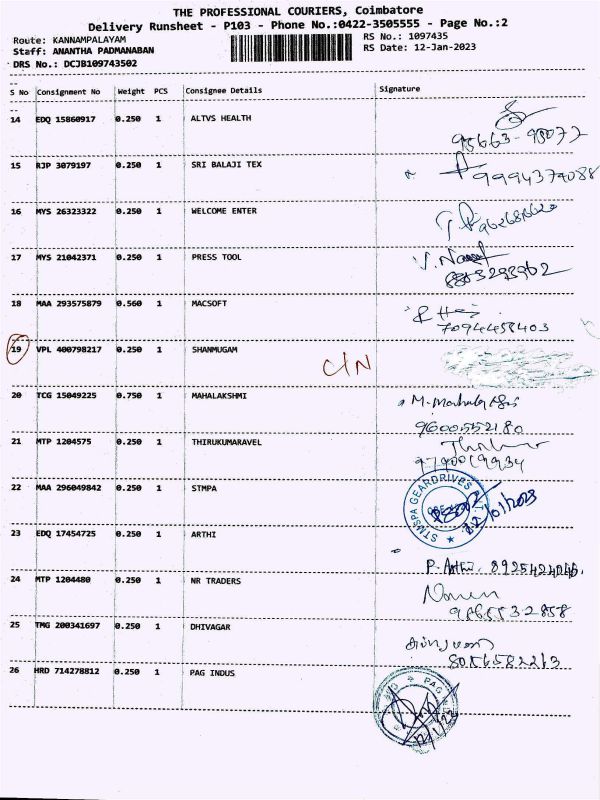 THE PROFESSIONAL COURIERS, Coimbatore
Delivery Runsheet - P103 - Phone No.:0422-3505555 - Page No.:2
Route: KANNAMPALAYAM
RS No.: 1097435
Staff: ANANTHA PADMANABAN
RS Date: 12-Jan-2023
DRS No.: DCJB109743502
S No Consignment No Weight PCS Consignee Details Signature
14 EDQ 15860917 0.250 1 ALTVS HEALTH
15 RJP 3079197 0.250 1 SRI BALAJI TEX
9994379088
16 MYS 26323322 0.250 1 WELCOME ENTER
17 MYS 21042371 0.250 1 PRESS TOOL
18 MAA 293575879 0.560 1 MACSOFT
7094458403
19 VPL 400798217 0.250 1 SHANMUGAM
C/N
20 TCG 15049225 0.750 1 MAHALAKSHMI
9600552180
21 MTP 1204575 0.250 1 THIRUKUMARAVEL
9790019934
22 MAA 296049842 0.250 1 STMPA
STMSPA GEARDRIVES
12/01/2023
23 EDQ 17454725 0.250 1 ARTHI
P. Arthi.
24 MTP 1204480 0.250 1 NR TRADERS
9865532858
25 TMG 200341697 0.250 1 DHIVAGAR
8056582213
26 HRD 714278812 0.250 1 PAG INDUS
PAG
12/1/23